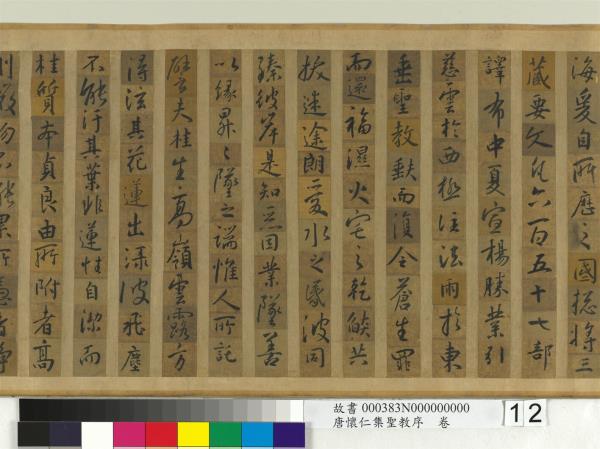 海爰自所歷之國揔將三
藏要文凡六百五十七部
譯布中夏宣楊勝業引
慈雲於西極注法雨於東
垂聖教缺而復全蒼生罪
而還福濕火宅之乾燄共
拔迷途朗愛水之昏波同
臻彼岸是知惡因業墜善
以緣昇々墜之端惟人所託
譬夫桂生高嶺雲露方
得泫其花蓮出淥波飛塵
不能汙其葉非蓮性自潔而
桂質本貞良由所附者高
則微物不能累所憑者淨
故書 000383N000000000
唐懷仁集聖教序 卷
12